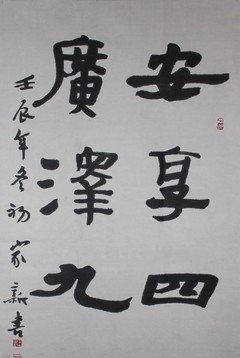 安享四
廣澤九
壬辰年冬初家新書